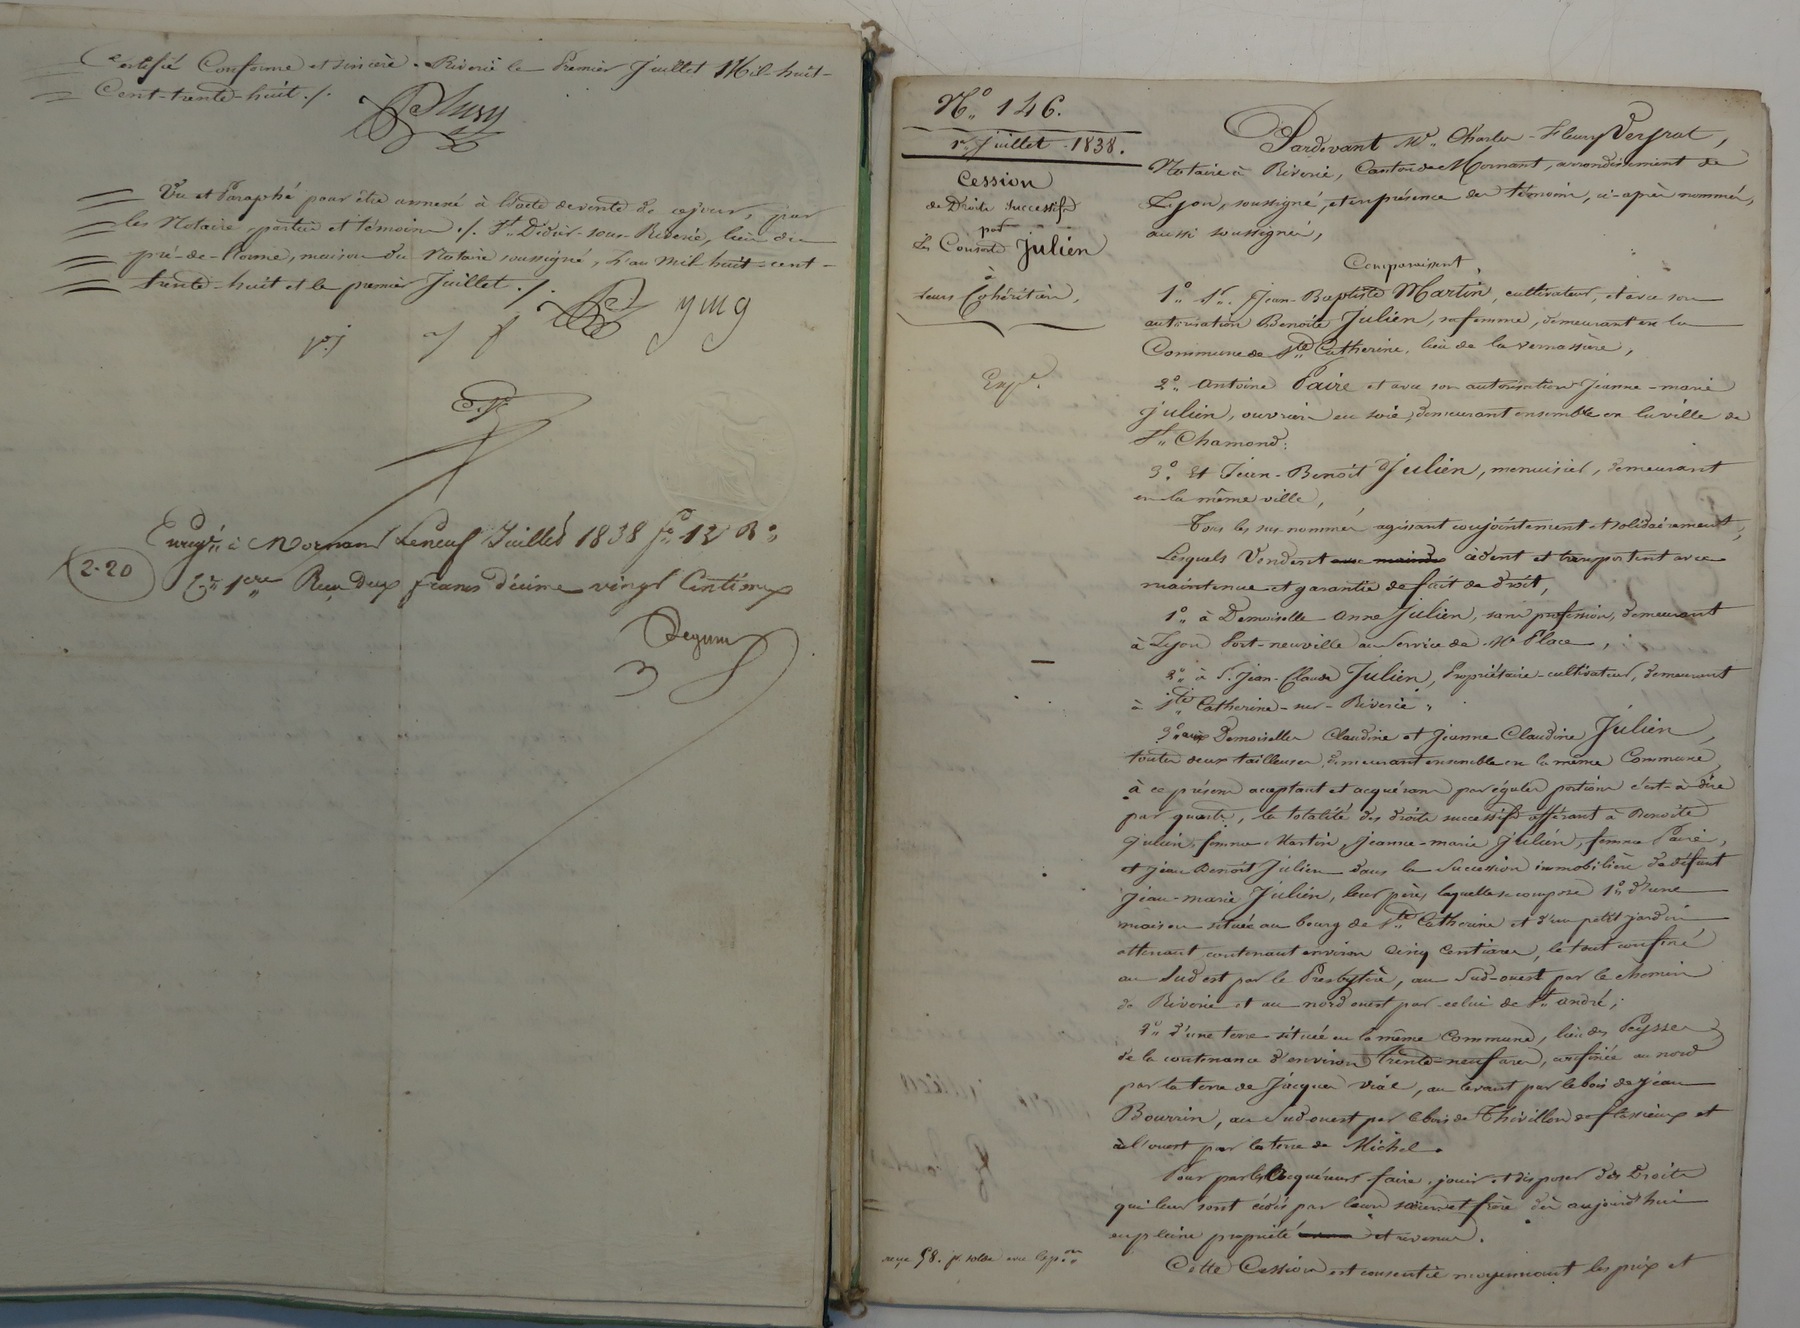 Certifié Conforme et sincère. Riverie le Premier Juillet Mil-huit-
Cent-trente-huit ./.
Vu et Paraphé pour être annexé à l'acte de vente de ce jour, par
les Notaire, parties et témoins ./. St. Didier-sous-Riverie, lieu du
pré-de-Lorme, maison du Notaire soussigné, L'an mil-huit-cent-
trente-huit et le premier Juillet ./.
Enregté. à Mornant Le neuf Juillet 1838 fo. 12 Ro.
2-20
Ce. 1ere Reçu Deux francs décime vingt Centimes
No. 146.
1er Juillet 1838.
Cession
de Droits Successifs
par
Les Consorts Julien
à
leurs Cohéritiers,
Exp.
Pardevant Me. Charles-Fleury Veyrat,
Notaire à Riverie, Canton de Mornant, arrondissement de
Lyon, soussigné, et en présence des témoins, ci-après nommés,
aussi soussignés,
Comparaissent,
1o. Sr. Jean-Baptiste Martin, cultivateur, et avec son
autorisation Benoîte Julien, sa femme, demeurant en la
Commune de Ste Catherine, lieu de la
2o. Antoine Paire et avec son autorisation Jeanne-marie
Julien, ouvriers en soie, demeurant ensemble en la ville de
St. Chamond;
3o. Et Jean-Benoît Julien, menuisier, demeurant
en la même ville,
Tous les sus-nommés agissant conjointement et solidairement,
Lesquels Vendent cèdent et transportent avec
maintenue et garantie de fait de droit,
1o. à Demoiselle Anne Julien, sans profession, demeurant
à Lyon Port-neuville au Service de Mr Place,
2o. à Sr. Jean-Claude Julien, Propriétaire-cultivateur, demeurant
à Ste Catherine-sur-Riverie,
3o. aux Demoiselles Claudine et Jeanne Claudine Julien,
toutes deux tailleuses, demeurant ensemble en la même Commune,
à ce présens acceptant et acquérans par égales portions c'est-à-dire
par quarts, la totalité des droits successifs afférant à Benoîte
Julien, femme Martin, Jeanne-marie Julien, femme Paire,
et Jean Benoît Julien dans la Succession immobilière de défunt
Jean-marie Julien, leur père, laquelle se compose 1o. d'une
maison située au bourg de Ste Catherine et d'un petit jardin
attenant contenant environ cinq Centiares, le tout confiné
au Sud est par le Presbytère, au Sud-ouest par le chemin
de Riverie et au nord ouest par celui de St. André;
2o. d'une terre située en la même Commune, lieu des
de la contenance d'environ trente-neuf ares, confinée au nord
par la terre de Jacques Vial, au levant par le bois de Jean
Bourrin, au Sud-ouest par le bois de Thévillon de et
à l'ouest par la terre de Michel.
Pour par les Acquéreurs faire, jouir et disposer des Droits
qui leur sont cédés par leurs soeurs et frère dès aujourd'hui
en pleine propriété et revenus.
Cette Cession est consentie moyennant les prix et